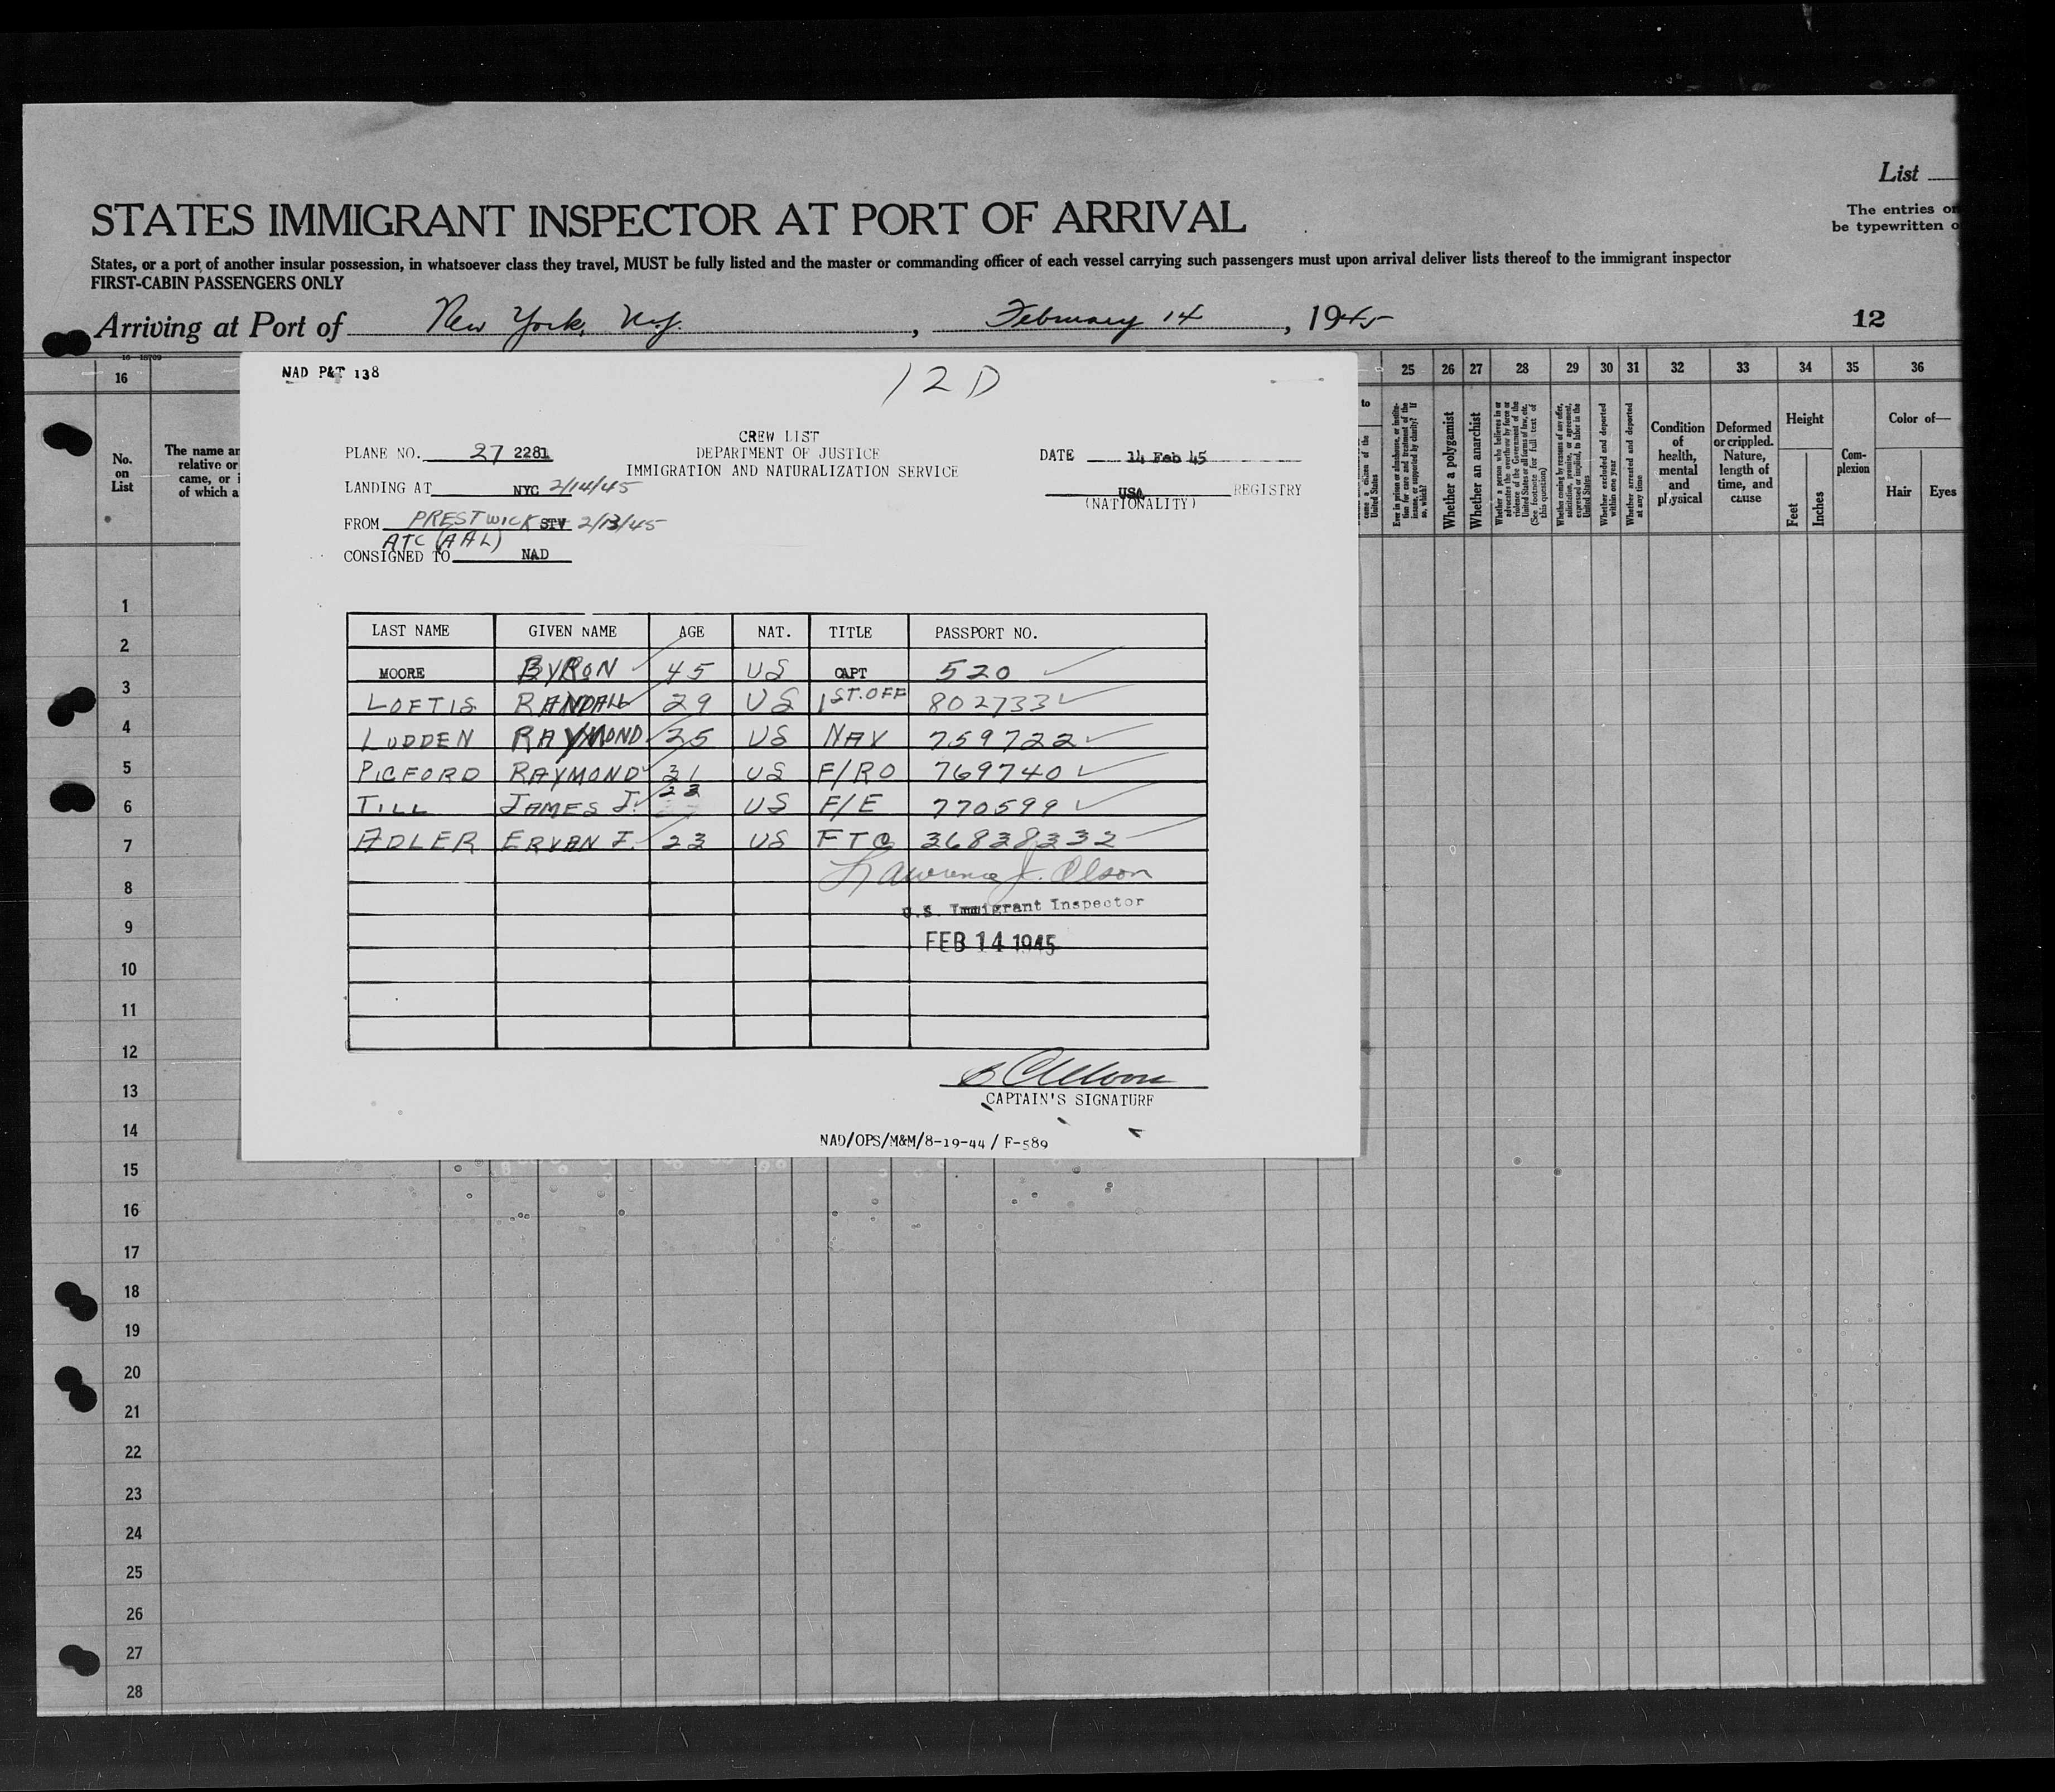 List
The entries on
be typewritten o
STATES IMMIGRANT INSPECTOR AT PORT OF ARRIVAL
States, or a port of another insular possession, in whatsoever class they travel, MUST be fully listed and the master or commanding officer of each vessel carrying such passengers must upon arrival deliver lists thereof to the immigrant inspector
FIRST-CABIN PASSENGERS ONLY
Arriving at Port of New York, N.Y. , February 14 , 1945 12
NAD P&T 138
12 D
CREW LIST
DEPARTMENT OF JUSTICE
IMMIGRATION AND NATURALIZATION SERVICE
PLANE NO. 27 2281
DATE 14 Feb 45
LANDING AT NYC 2/14/45
USA REGISTRY
(NATIONALITY)
FROM PRESTWICK STV 2/13/45
ATC (AAL)
CONSIGNED TO NAD
LAST NAME GIVEN NAME AGE NAT. TITLE PASSPORT NO.
MOORE BYRON 45 US CAPT 520
LOFTIS RANDALL 29 US 1ST.OFF 802733
LUDDEN RAYMOND 35 US NAV 759722
PICFORD RAYMOND 31 US F/RO 769740
TILL JAMES J. 23 US F/E 770599
ADLER ERVAN I. 23 US FTC 36838332
Lawrence J. Olson
U.S. Immigrant Inspector
FEB 14 1945
CAPTAIN'S SIGNATURE
NAD/OPS/M&M/8-19-44 / F-589
16 25 26 27 28 29 30 31 32 33 34 35 36
No.
on
List
The name an
relative or
came, or i
of which a
to
Ever in prison or almshouse, or institution for care and treatment of the insane, or supported by charity? If so, which?
Whether a polygamist
Whether an anarchist
Whether excluded and deported within one year
Whether arrested and deported at any time
Condition
of
health,
mental
and
physical
Deformed
or crippled.
Nature,
length of
time, and
cause
Height
Feet
Inches
Com-
plexion
Color of—
Hair Eyes
1
2
3
4
5
6
7
8
9
10
11
12
13
14
15
16
17
18
19
20
21
22
23
24
25
26
27
28